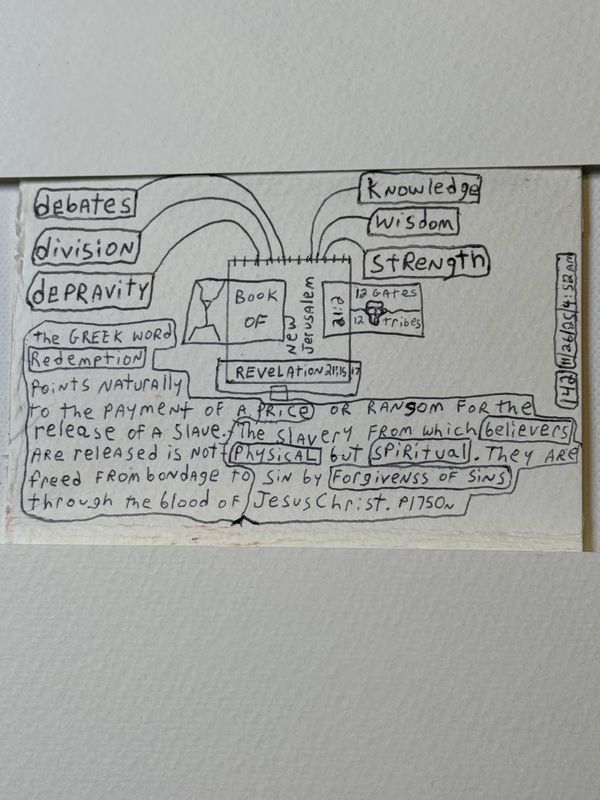 debates
division
depravity
Knowledge
Wisdom
Strength
Book
of
New
Jerusalem
21:2
12 Gates
12 tribes
Revelation 21:15,17
142 11/26/25 4:52am
the Greek word
Redemption
points naturally
to the payment of a price or ransom for the
release of a slave. The slavery from which believers
are released is not physical but spiritual. They are
freed from bondage to sin by Forgivenss of sins
through the blood of Jesus Christ. P1750N